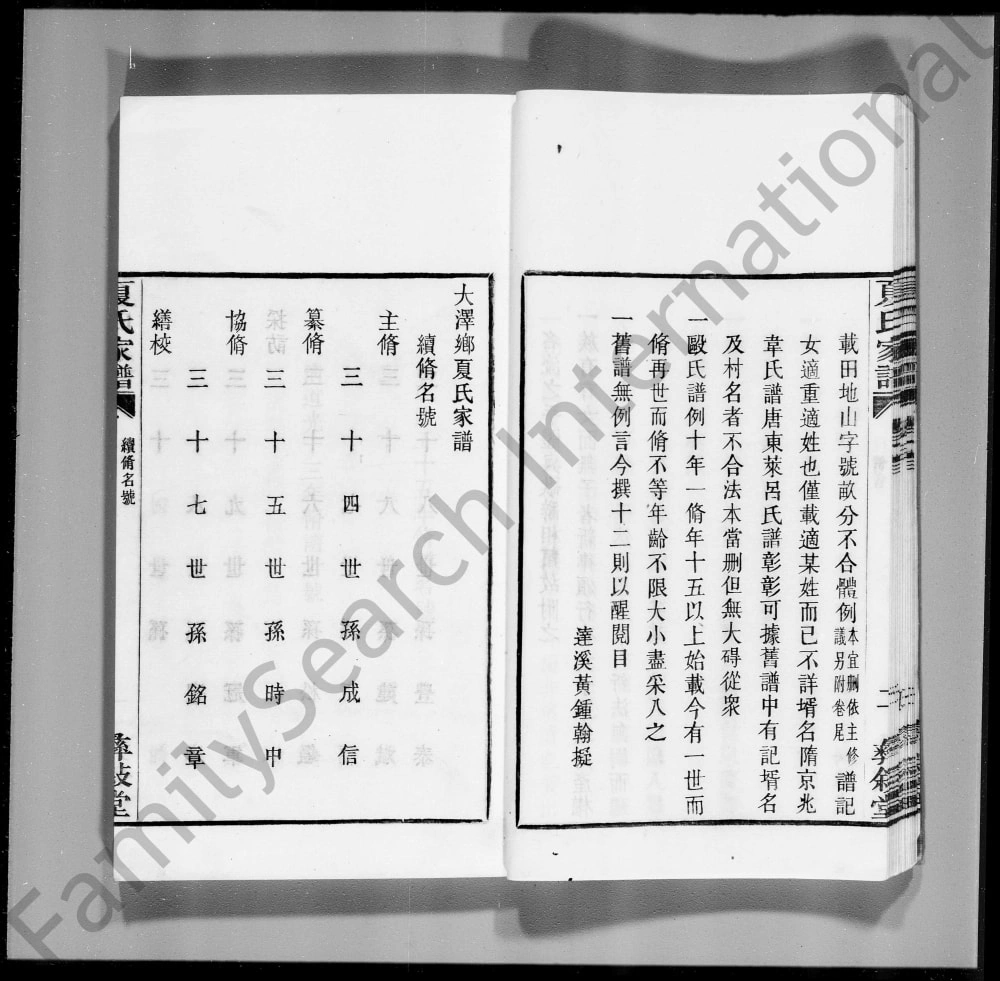 載田地山字號畝分不合體例本宜刪依主修議另附卷尾譜記
女適重適姓也僅載適某姓而已不詳壻名隋京兆
韋氏譜唐東萊呂氏譜彰彰可據舊譜中有記壻名
及村名者不合法本當刪但無大碍從衆
一歐氏譜例十年一脩年十五以上始載今有一世而
脩再世而脩不等年齡不限大小盡采入之
一舊譜無例言今撰十二則以醒閱目
達溪黃鍾翰擬
夏氏家譜
二
彝敍堂
大澤鄉夏氏家譜
續脩名號
主脩
三十四世孫成信
纂脩
三十五世孫時中
協脩
三十七世孫銘章
繕校
夏氏家譜
續脩名號
FamilySearch International